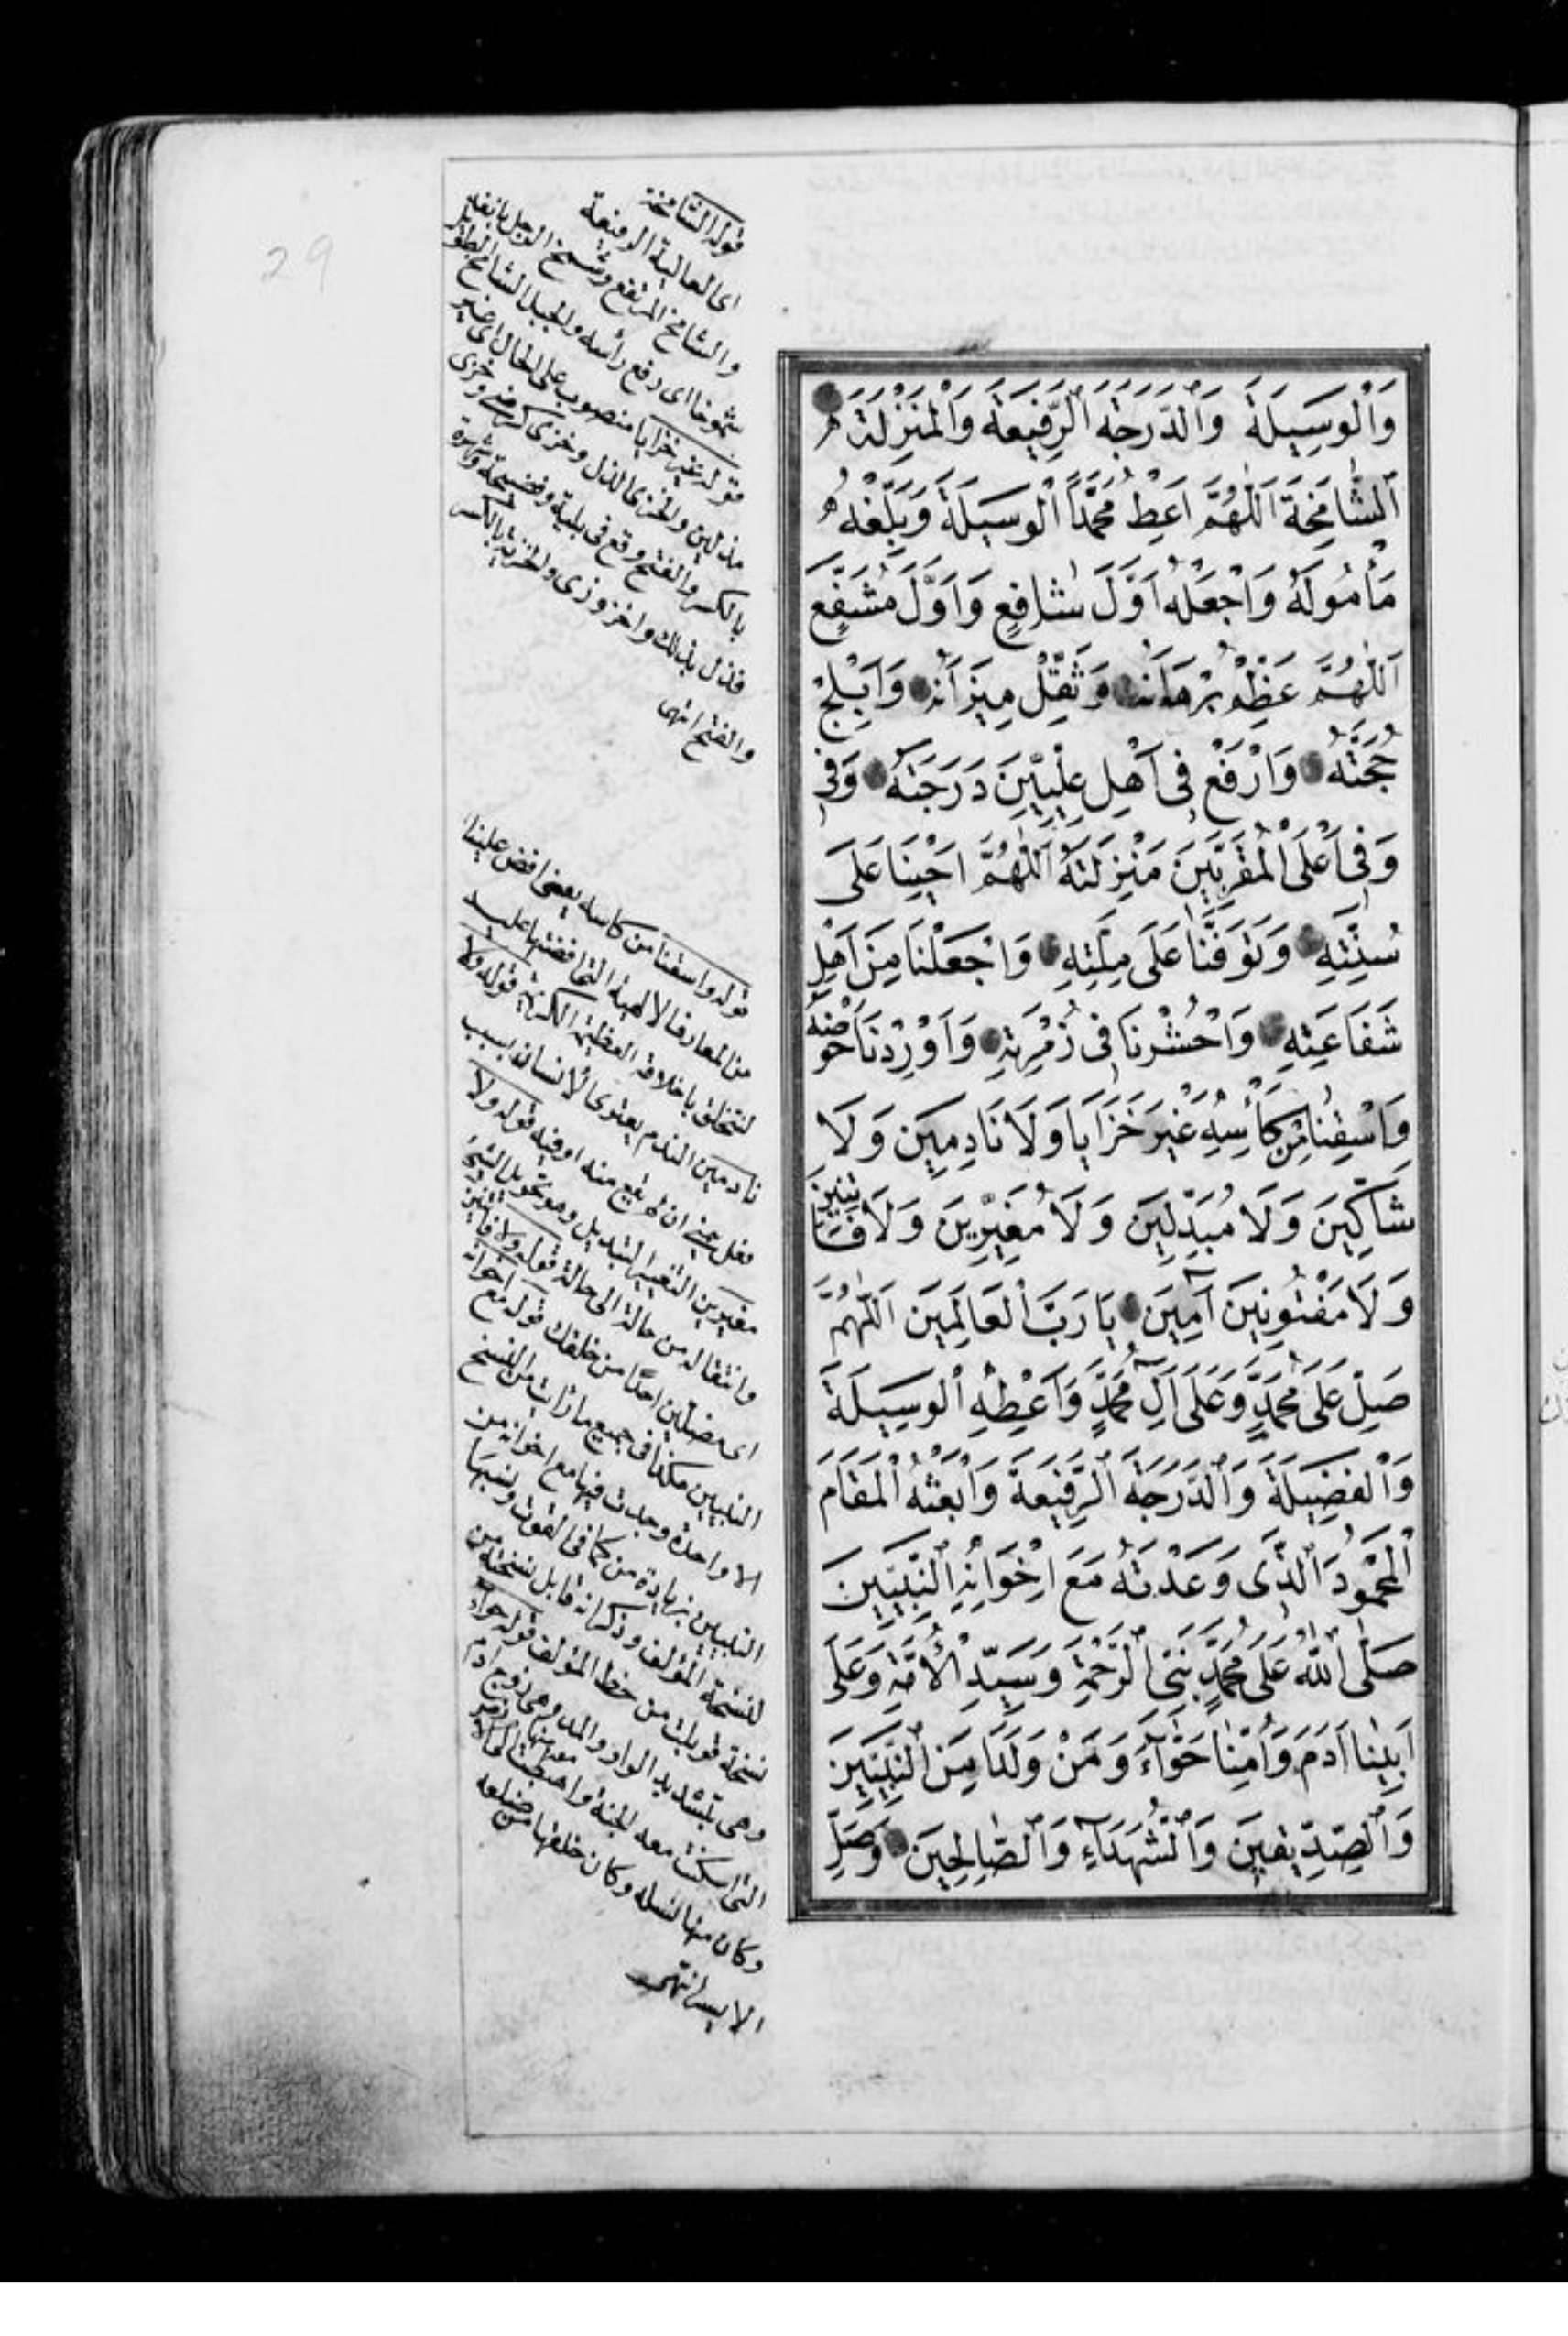 وَالْوَسِيلَةَ وَالدَّرَجَةَ الرَّفِيعَةَ وَالْمَنْزِلَةَ
الشَّامِخَةَ اَللّٰهُمَّ اَعْطِ مُحَمَّدًا الْوَسِيلَةَ وَبَلِّغْهُ
مَأْمُولَهُ وَاجْعَلْهُ اَوَّلَ شَافِعٍ وَاَوَّلَ مُشَفَّعٍ
اَللّٰهُمَّ عَظِّمْ بُرْهَانَهُ وَثَقِّلْ مِيزَانَهُ وَاَبْلِجْ
حُجَّتَهُ وَارْفَعْ فِى اَهْلِ عِلِّيِّينَ دَرَجَتَهُ وَفِى
وَفِى اَعْلَى الْمُقَرَّبِينَ مَنْزِلَتَهُ اَللّٰهُمَّ اَحْيِنَا عَلَى
سُنَّتِهِ وَتَوَفَّنَا عَلَى مِلَّتِهِ وَاجْعَلْنَا مِنْ اَهْلِ
شَفَاعَتِهِ وَاحْشُرْنَا فِى زُمْرَتِهِ وَاَوْرِدْنَا حَوْضَهُ
وَاسْقِنَا مِنْ كَأْسِهِ غَيْرَ خَزَايَا وَلَا نَادِمِينَ وَلَا
شَاكِّينَ وَلَا مُبَدِّلِينَ وَلَا مُغَيِّرِينَ وَلَا فَتَّانِينَ
وَلَا مَفْتُونِينَ آمِينَ يَا رَبَّ الْعَالَمِينَ اَللّٰهُمَّ
صَلِّ عَلَى مُحَمَّدٍ وَعَلَى آلِ مُحَمَّدٍ وَاَعْطِهِ الْوَسِيلَةَ
وَالْفَضِيلَةَ وَالدَّرَجَةَ الرَّفِيعَةَ وَابْعَثْهُ الْمَقَامَ
الْمَحْمُودَ الَّذِى وَعَدْتَهُ مَعَ اِخْوَانِهِ النَّبِيِّينَ
صَلَّى اللّٰهُ عَلَى مُحَمَّدٍ نَبِىِّ الرَّحْمَةِ وَسَيِّدِ الْاُمَّةِ وَعَلَى
اَبِينَا آدَمَ وَاُمِّنَا حَوَّآءَ وَمَنْ وَلَدَا مِنَ النَّبِيِّينَ
وَالصِّدِّيقِينَ وَالشُّهَدَآءِ وَالصَّالِحِينَ وَصَلِّ
29
قوله الشامخة
اى العالية الرفيعة
والشامخ المرتفع وشمخ الرجل بانفه
شموخا اى رفع رأسه والجبل الشامخ الطويل
قوله غير خزايا منصوب على الحال اى غير
مذلين والخزى الذل وخزى كرضى خزى
بالكسر والفتح وقع فى بلية وفضيحة وشهرة
فذل بذلك
والفتح انتهى
قوله واسقنا من كاسه يعنى افض علينا
من المعارف الالهية التى افضتها عليه
لنتخلق باخلاقه العظيمة الكريمة قوله ولا
نادمين الندم يعترى الانسان بسبب
فعل يتمنى ان لم يقع منه قوله ولا
مغيرين التغيير التبديل وهو تحويل الشئ
وانتقاله من حالة الى حالة قوله ولا فاتنين
اى مضلين احدا من خلقك قوله مع اخوانه
النبيين هكذا فى جميع ما رأيت من النسخ
الا واحدة وجدت فيها مع اخوانه من
النبيين بزيادة من كما فى القوت ونسبها
لنسخة المؤلف وذكر انه قابل نسخته من
نسخة قوبلت من خط المؤلف قوله حواء
وهى بتشديد الواو والمد وهى زوج آدم
التى اسكنت معه الجنة واهبطت
وكان منها نسله وكان خلقها من ضلعه
الايسر انتهى